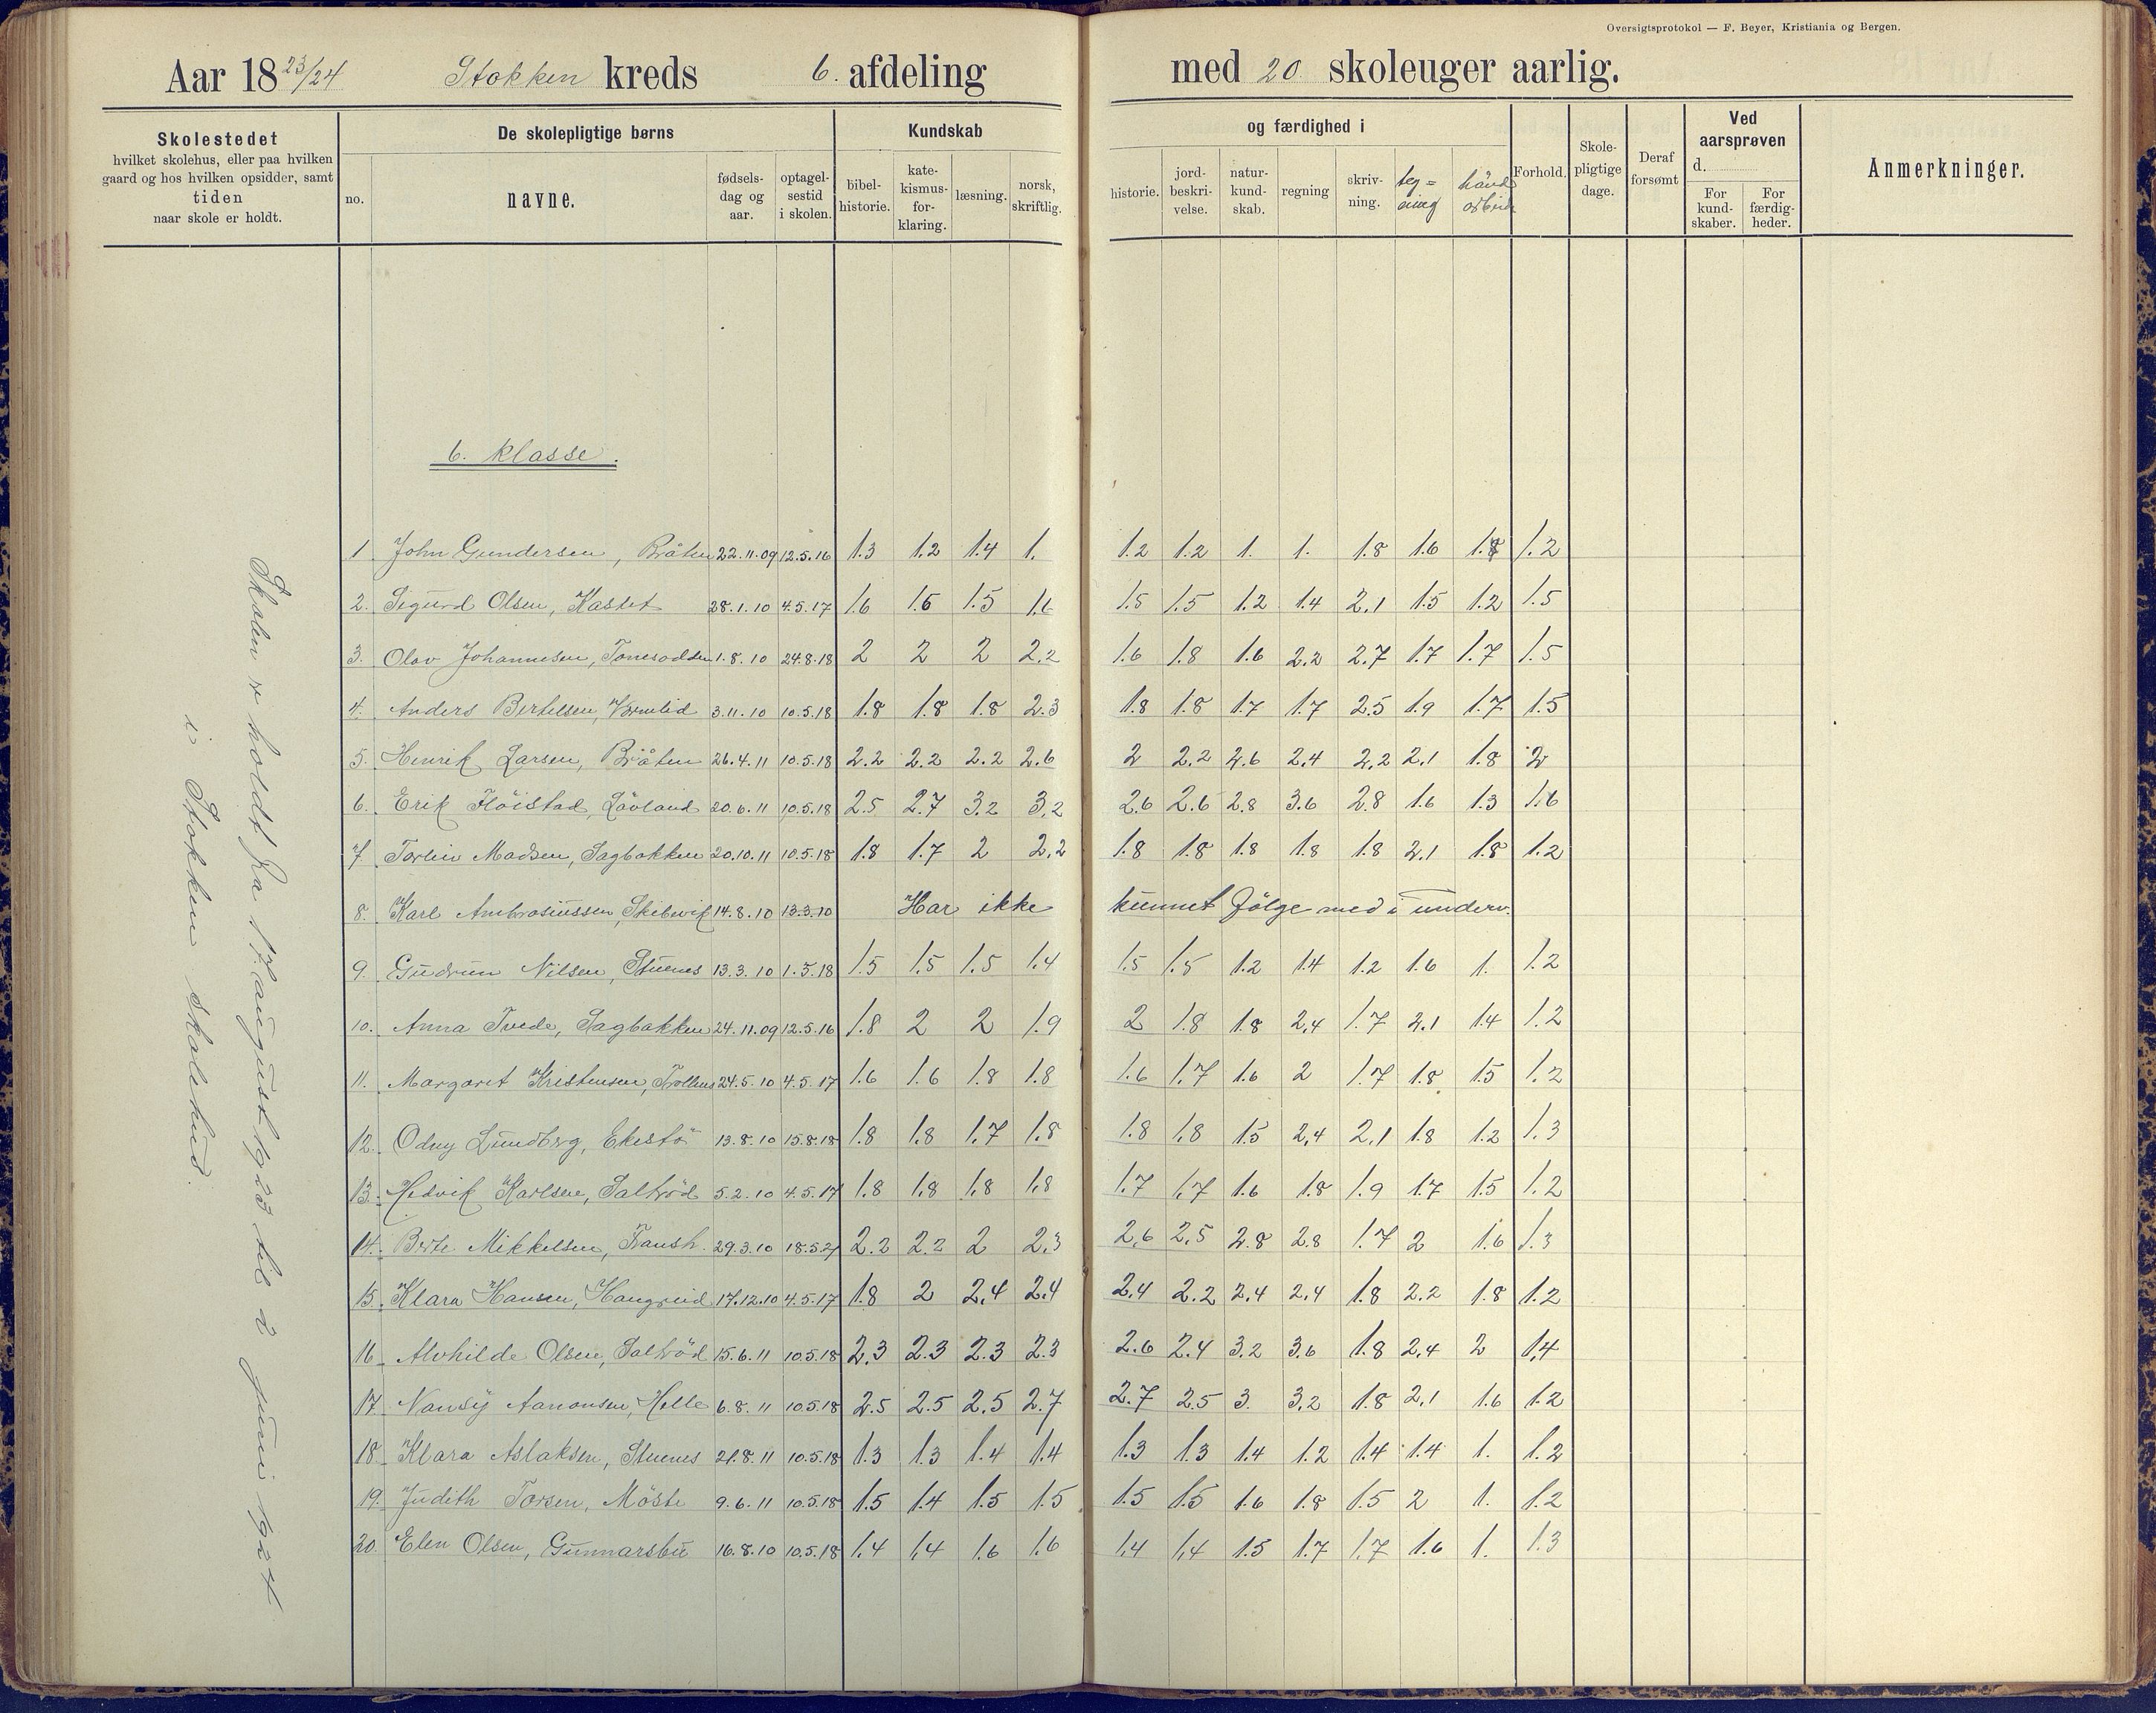 Oversigtsprotokol — F. Beyer, Kristiania og Bergen.
Aar 18 23/24 Stokken kreds 6. afdeling med 20 skoleuger aarlig.
Skolestedet
hvilket skolehus, eller paa hvilken
gaard og hos hvilken opsidder, samt
tiden
naar skole er holdt.
De skolepligtige børns
no.
navne.
fødsels-
dag og
aar.
optagel-
sestid
i skolen.
Kundskab
bibel-
historie.
kate-
kismus-
for-
klaring.
læsning.
norsk,
skriftlig.
og færdighed i
historie.
jord-
beskri-
velse.
natur-
kund-
skab.
regning
skriv-
ning.
teg=
ning
hånd
arbeide
Forhold.
Skole-
pligtige
dage.
Deraf
forsømt
Ved
aarsprøven
d.
For
kund-
skaber.
For
færdig-
heder.
Anmerkninger.
Skolen er holdt fra 17. august 1923 til 2 juni 1924
i Stokken skolehus.
6. klasse.
1 John Gundersen, Bråten 22.11.09 12.5.16 1.3 1.2 1.4 1. 1.2 1.2 1. 1. 1.8 1.6 1.8 1.2
2. Sigurd Olsen, Kastet 28.1.10 4.5.17 1.6 1.6 1.5 1.6 1.5 1.5 1.2 1.4 2.1 1.5 1.2 1.5
3. Olav Johannesen, Tonesodden 1.8.10 24.8.18 2 2 2 2.2 1.6 1.8 1.6 2.2 2.7 1.7 1.7 1.5
4. Anders Bertelsen, Vormlid 3.11.10 10.5.18 1.8 1.8 1.8 2.3 1.8 1.8 1.7 1.7 2.5 1.9 1.7 1.5
5. Henrik Larsen, Bråten 26.4.11 10.5.18 2.2 2.2 2.2 2.6 2 2.2 2.6 2.4 2.2 2.1 1.8 2
6. Erik Flöistad, Lövland 20.6.11 10.5.18 2.5 2.7 3.2 3.2 2.6 2.6 2.8 3.6 2.8 1.6 1.3 1.6
7. Torleiv Madsen, Sagbakken 20.10.11 10.5.18 1.8 1.7 2 2.2 1.8 1.8 1.8 1.8 1.8 2.1 1.8 1.2
8. Karl Ambrosiussen, Skibevik 14.8.10 13.3.10 Har ikke kunnet fölge med i underv.
9. Gudrun Nilsen, Stuenes 13.3.10 1.5.18 1.5 1.5 1.5 1.4 1.5 1.5 1.2 1.4 1.2 1.6 1. 1.2
10. Anna Tvede, Sagbakken 24.11.09 12.5.16 1.8 2 2 1.9 2 1.8 1.8 2.4 1.7 2.1 1.4 1.2
11. Margaret Kristensen, Trollnes 24.5.10 4.5.17 1.6 1.6 1.8 1.8 1.6 1.7 1.6 2 1.7 1.8 1.5 1.2
12. Odny Lundberg, Ekestö 13.8.10 15.8.18 1.8 1.8 1.7 1.8 1.8 1.8 1.5 2.4 2.1 1.8 1.2 1.3
13. Hedvik Karlsen, Saltröd 5.2.10 4.5.17 1.8 1.8 1.8 1.8 1.7 1.7 1.6 1.8 1.9 1.7 1.5 1.2
14. Berte Mikkelsen, 29.3.10 18.5.21 2.2 2.2 2 2.3 2.6 2.5 2.8 2.8 1.7 2 1.6 1.3
15. Klara Hansen, Haugreid 17.12.10 4.5.17 1.8 2 2.4 2.4 2.4 2.2 2.4 2.4 1.8 2.2 1.8 1.2
16. Alvhilde Olsen, Saltröd 15.6.11 10.5.18 2.3 2.3 2.3 2.3 2.6 2.4 3.2 3.6 1.8 2.4 2 1.4
17. Nansy Aanonsen, Helle 6.8.11 10.5.18 2.5 2.5 2.5 2.7 2.7 2.5 3. 3.2 1.8 2.1 1.6 1.2
18. Klara Aslaksen, Stuenes 21.8.11 10.5.18 1.3 1.3 1.4 1.4 1.3 1.3 1.4 1.2 1.4 1.4 1. 1.2
19. Judith Torsen, Möste 9.6.11 10.5.18 1.5 1.4 1.5 1.5 1.5 1.5 1.6 1.8 1.5 2 1. 1.2
20. Elen Olsen, Gunnarsbu 16.8.10 10.5.18 1.4 1.4 1.6 1.6 1.4 1.4 1.5 1.7 1.7 1.6 1. 1.3